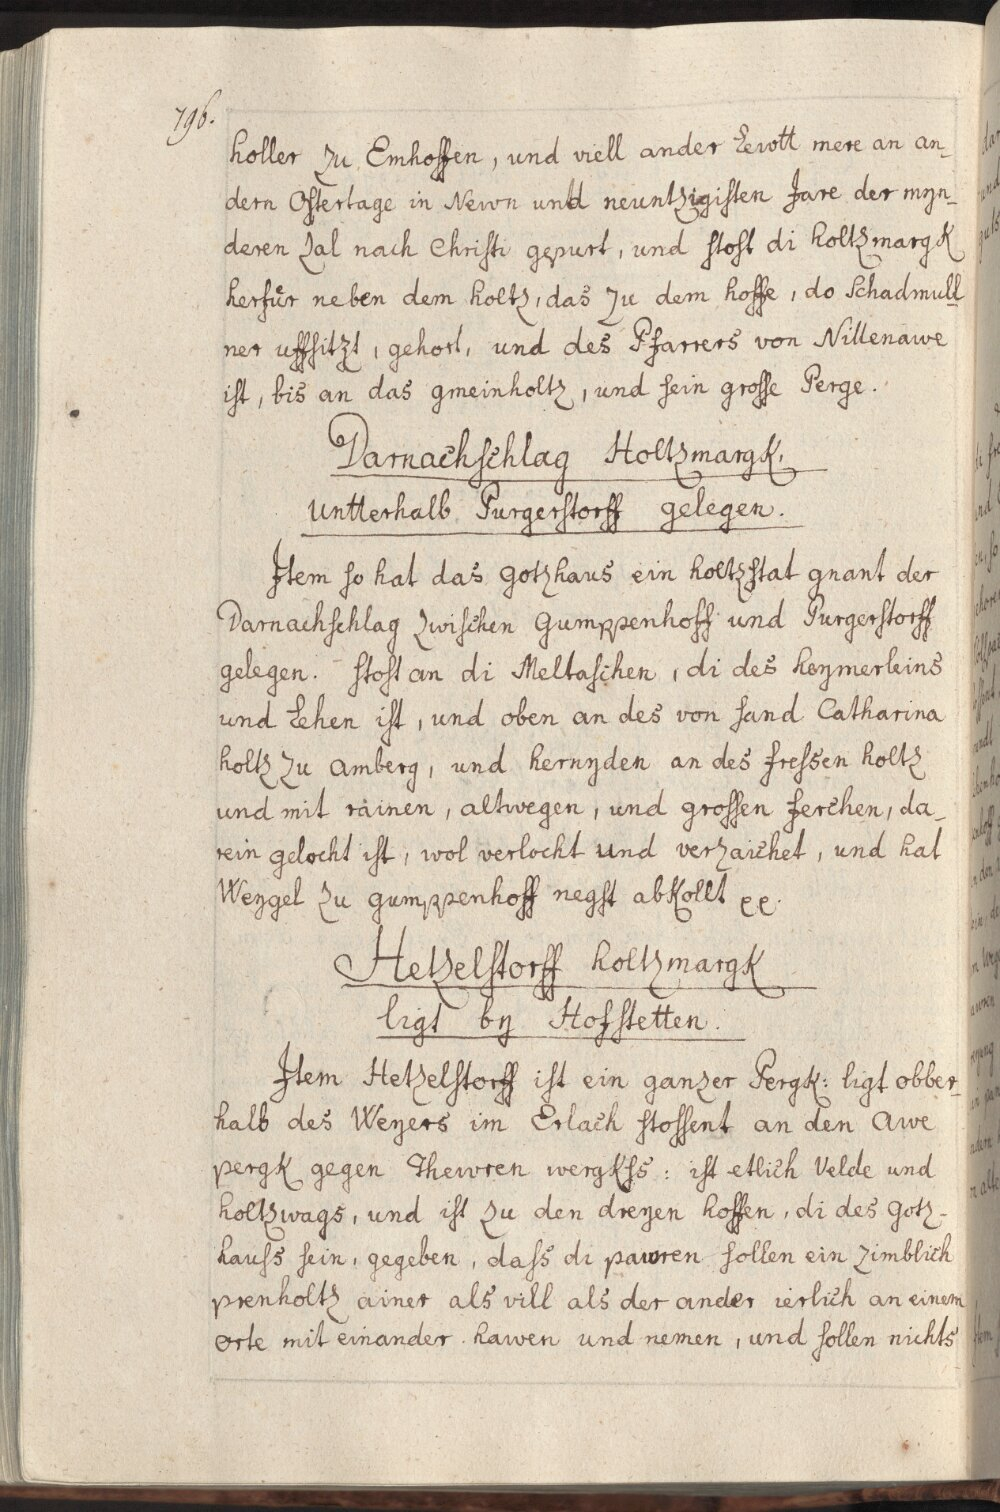 796.
holler zu Emhoffen, und viell ander Lewtt mere an an_
dern Ostertage in Newn und neuntzigisten Jare der myn_
deren Zal nach Christi gepurt, und stost di holtzmargk
herfür neben dem holtz, das zu dem hoffe, do Schadmull
ner uffsitzt, gehort, und des Pfarrers von Nittenawe
ist, bis an das gmeinholtz, und sein grosse Perge.
Darnachschlag Holtzmargk,
untterhalb Purgerstorff gelegen.
Item so hat das gotzhaus ein holtzstat gnant der
Darnachschlag zwischen Gumppenhoff und Purgerstorff
gelegen. stost an di Meltaschen, di des heymerleins
und Lehen ist, und oben an des von sand Catharina
holtz zu Amberg, und hernyden an des fressen holtz
und mit räinen, altwegen, und grossen ferchen, da_
rein gelocht ist, wol verlocht und verzaichet, und hat
Weygel zu gumppenhoff negst abkollt
Hetzelstorff holtzmargk
ligt by Hofstetten.
Item Hetzelstorff ist ein ganzer Pergk: ligt obber_
halb des Weyers im Erlach stossent an den Awe
pergk gegen Thewren wergkhs: ist etlich Velde und
holtzwags, und ist zu den dreyen hoffen, di des gotz-
hauss sein, gegeben, dass di pawren sollen ein zimblich
prenholtz ainer als vill als der ander ierlich an einem
orte mit einander hawen und nemen, und sollen nichts